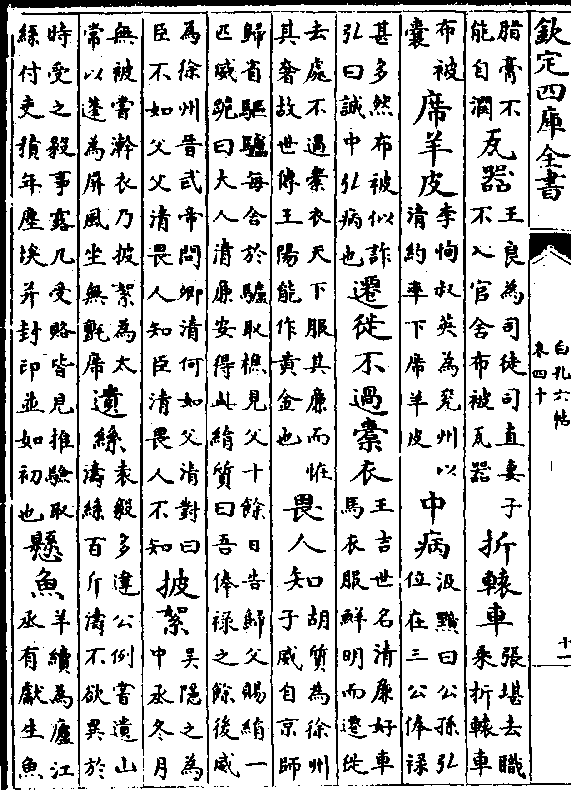 欽定四庫全書
白孔六帖
卷四十
十一
脂膏不能自潤瓦器王良為司徒司直妻子不入官舍布被瓦器折轅車張堪去職乘折轅車
布被囊席羊皮李恂叔英為兖州以清約率下席羊皮中病汲黯曰公孫弘位在三公俸禄
甚多然布被似詐弘曰誠中弘病也遷徙不過橐衣王吉世名清廉好車馬衣服鮮明而遷徙
去處不過橐衣天下服其廉而恠其奢故世傳王陽能作黄金也畏人知胡質為徐州子威自京師
歸省驅驢每舍於驢取樵見父十餘日告歸父賜絹一匹威跪曰大人清廉安得此絹質曰吾俸禄之餘後威
為徐州晉武帝問卿清何如父清對曰臣不如父父清畏人知臣清畏人不知披絮吴隱之為中丞冬月
無被嘗澣衣乃披絮為太常以蓬為屏風坐無氈席遺絲袁毅多違公例嘗遺山濤絲百斤濤不欲異於
時受之毅事露凡受賂皆見推驗取絲付吏積年塵埃并封印並如初也懸魚羊續為廬江丞有獻生魚